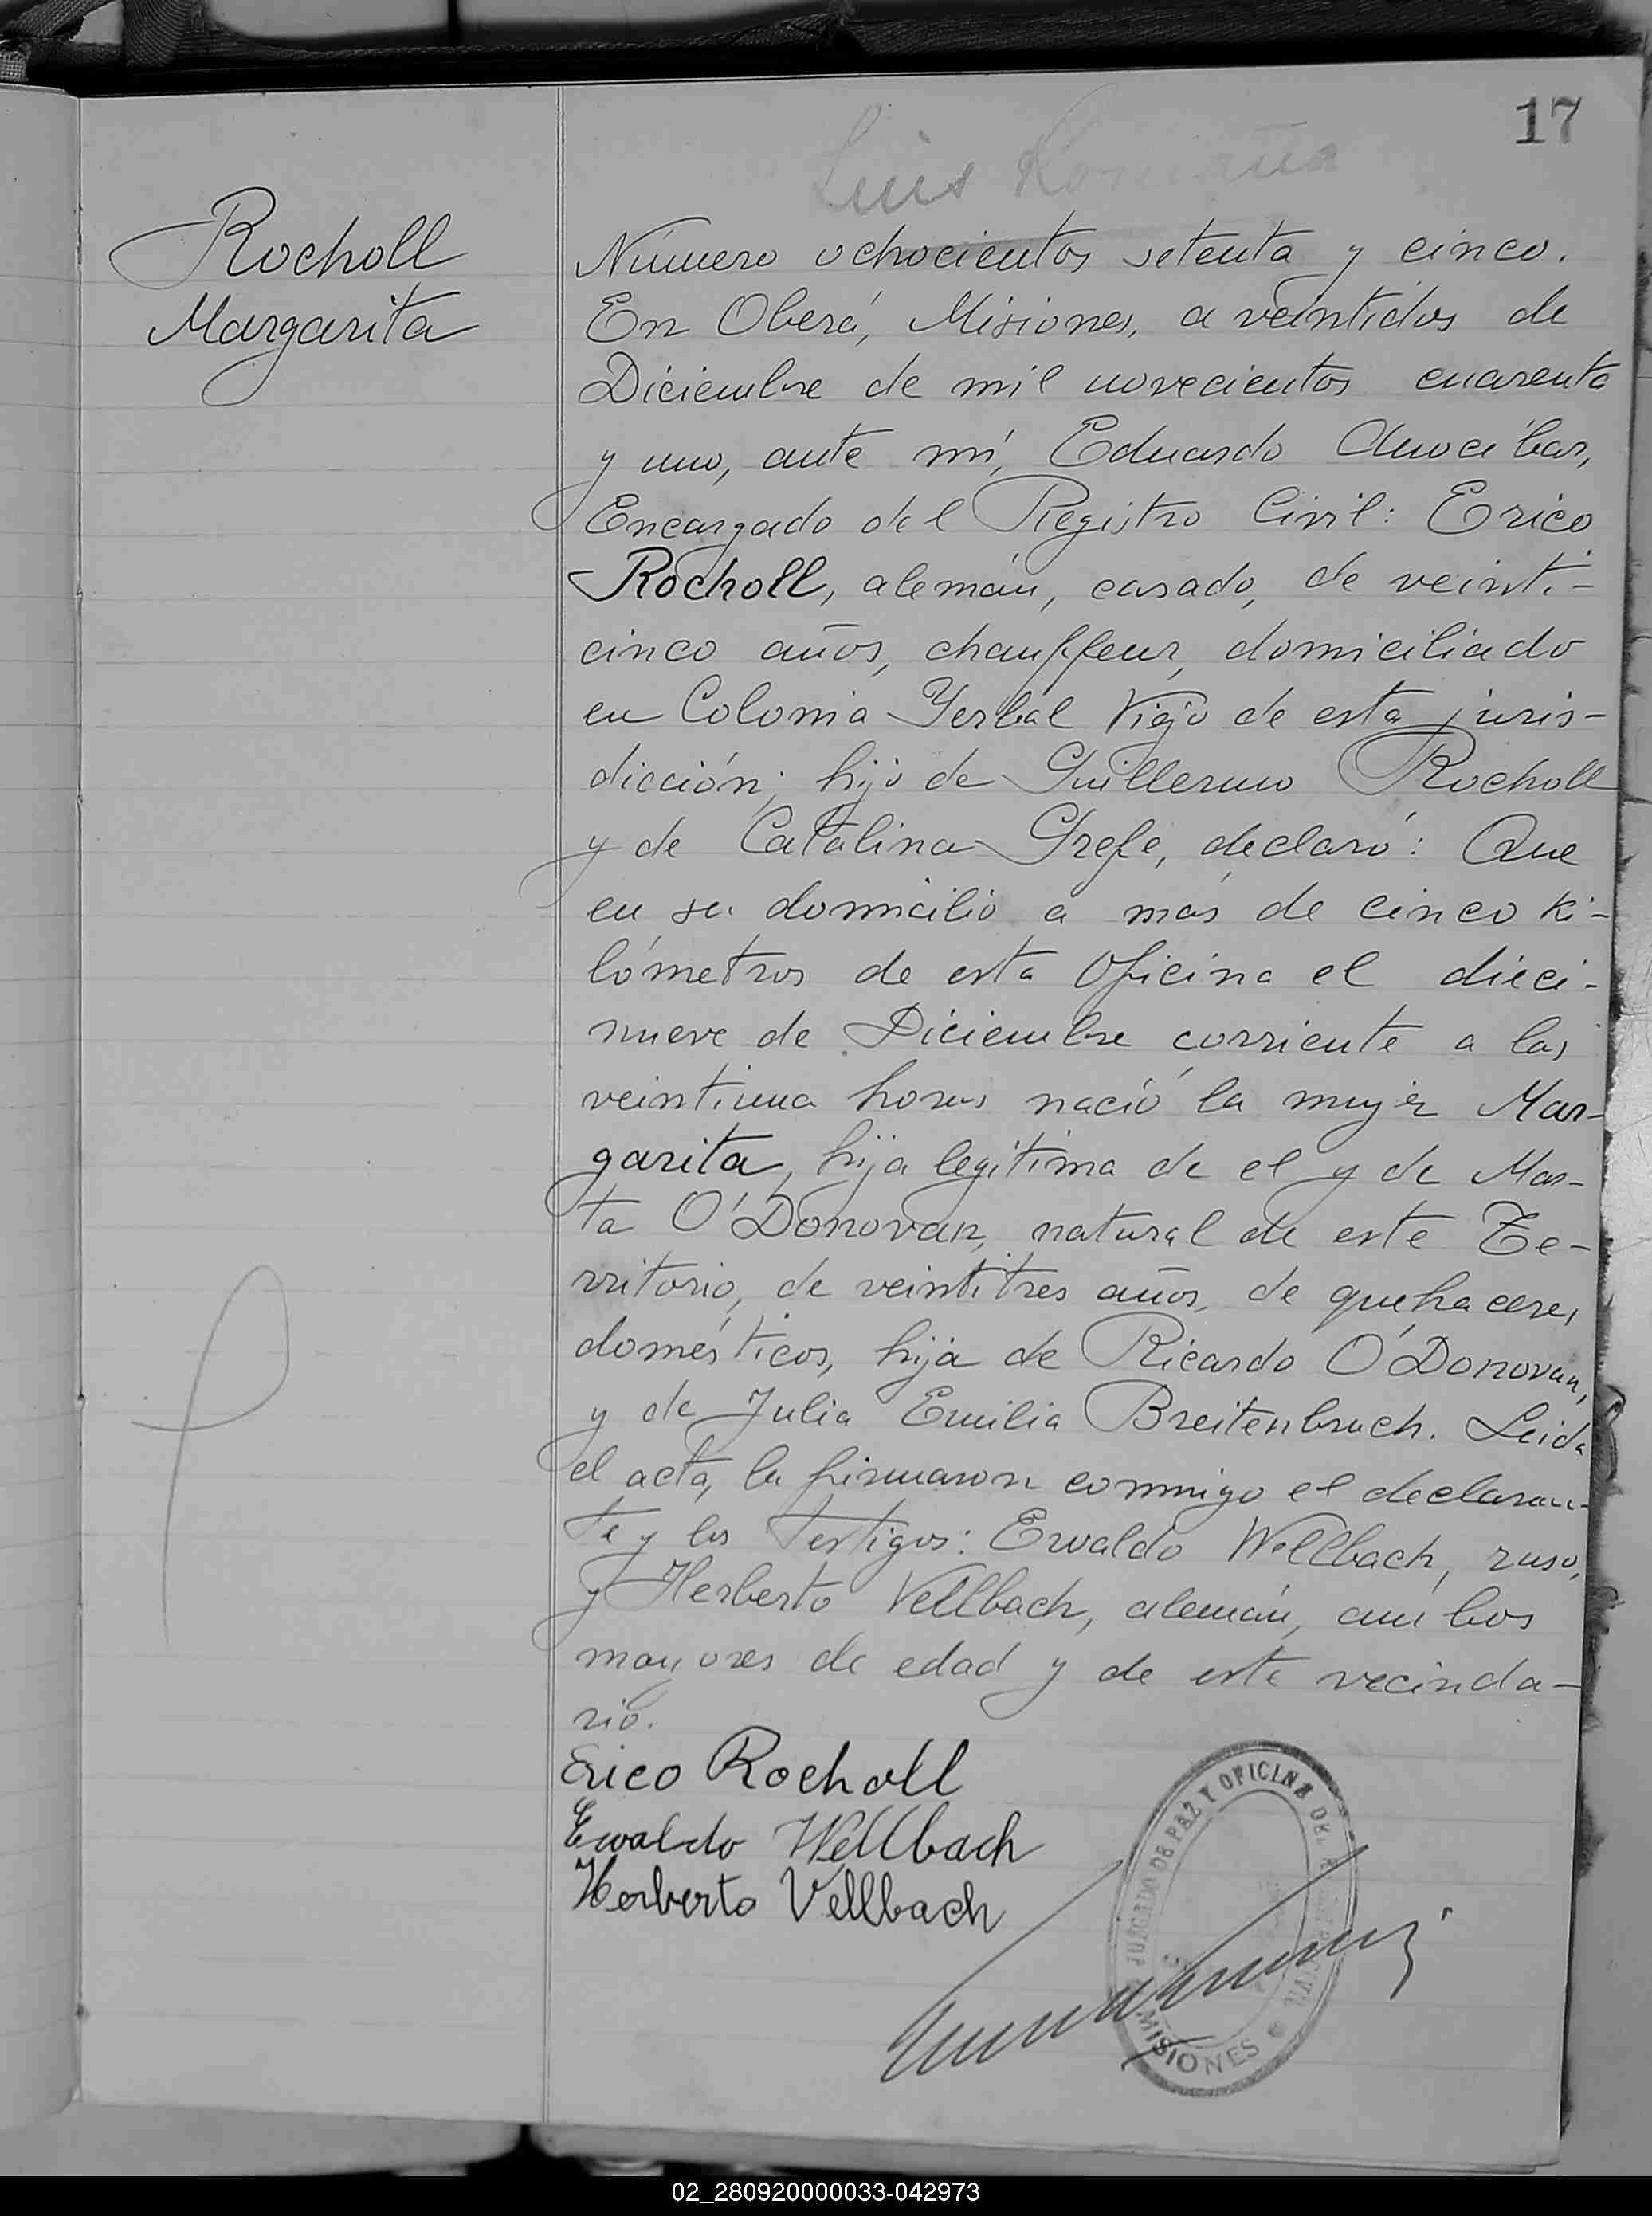 17
Luis
Rocholl
Margarita
Número ochocientos setenta y cinco.
En Oberá, Misiones, a veintidos de
Diciembre de mil novecientos cuarenta
y uno, ante mí, Eduardo
Encargado del Registro Civil: Erico
Rocholl, alemán, casado, de veinti-
cinco años, chauffeur, domiciliado
en Colonia Yerbal Viejo de esta juris-
dicción; hijo de Guillermo Rocholl
y de Catalina Grefe, declaró: Que
en su domicilio a más de cinco ki-
lómetros de esta Oficina el dieci-
nueve de Diciembre corriente a las
veintiuna horas nació la mujer Mar-
garita, hija legítima de el y de Mar-
ta O'Donovan, natural de este Te-
rritorio, de veintitres años, de quehaceres
domésticos, hija de Ricardo O'Donovan,
y de Julia Emilia Breitenbruch. Leida
el acta, la firmaron conmigo el declaran-
te y los testigos: Ewaldo Wellbach, ruso,
y Herberto Vellbach, alemán, ambos
mayores de edad y de este vecinda-
rio.
Erico Rocholl
Ewaldo Wellbach
Herberto Vellbach
JUZGADO DE PAZ Y OFICINA DEL
MISIONES
02_280920000033-042973